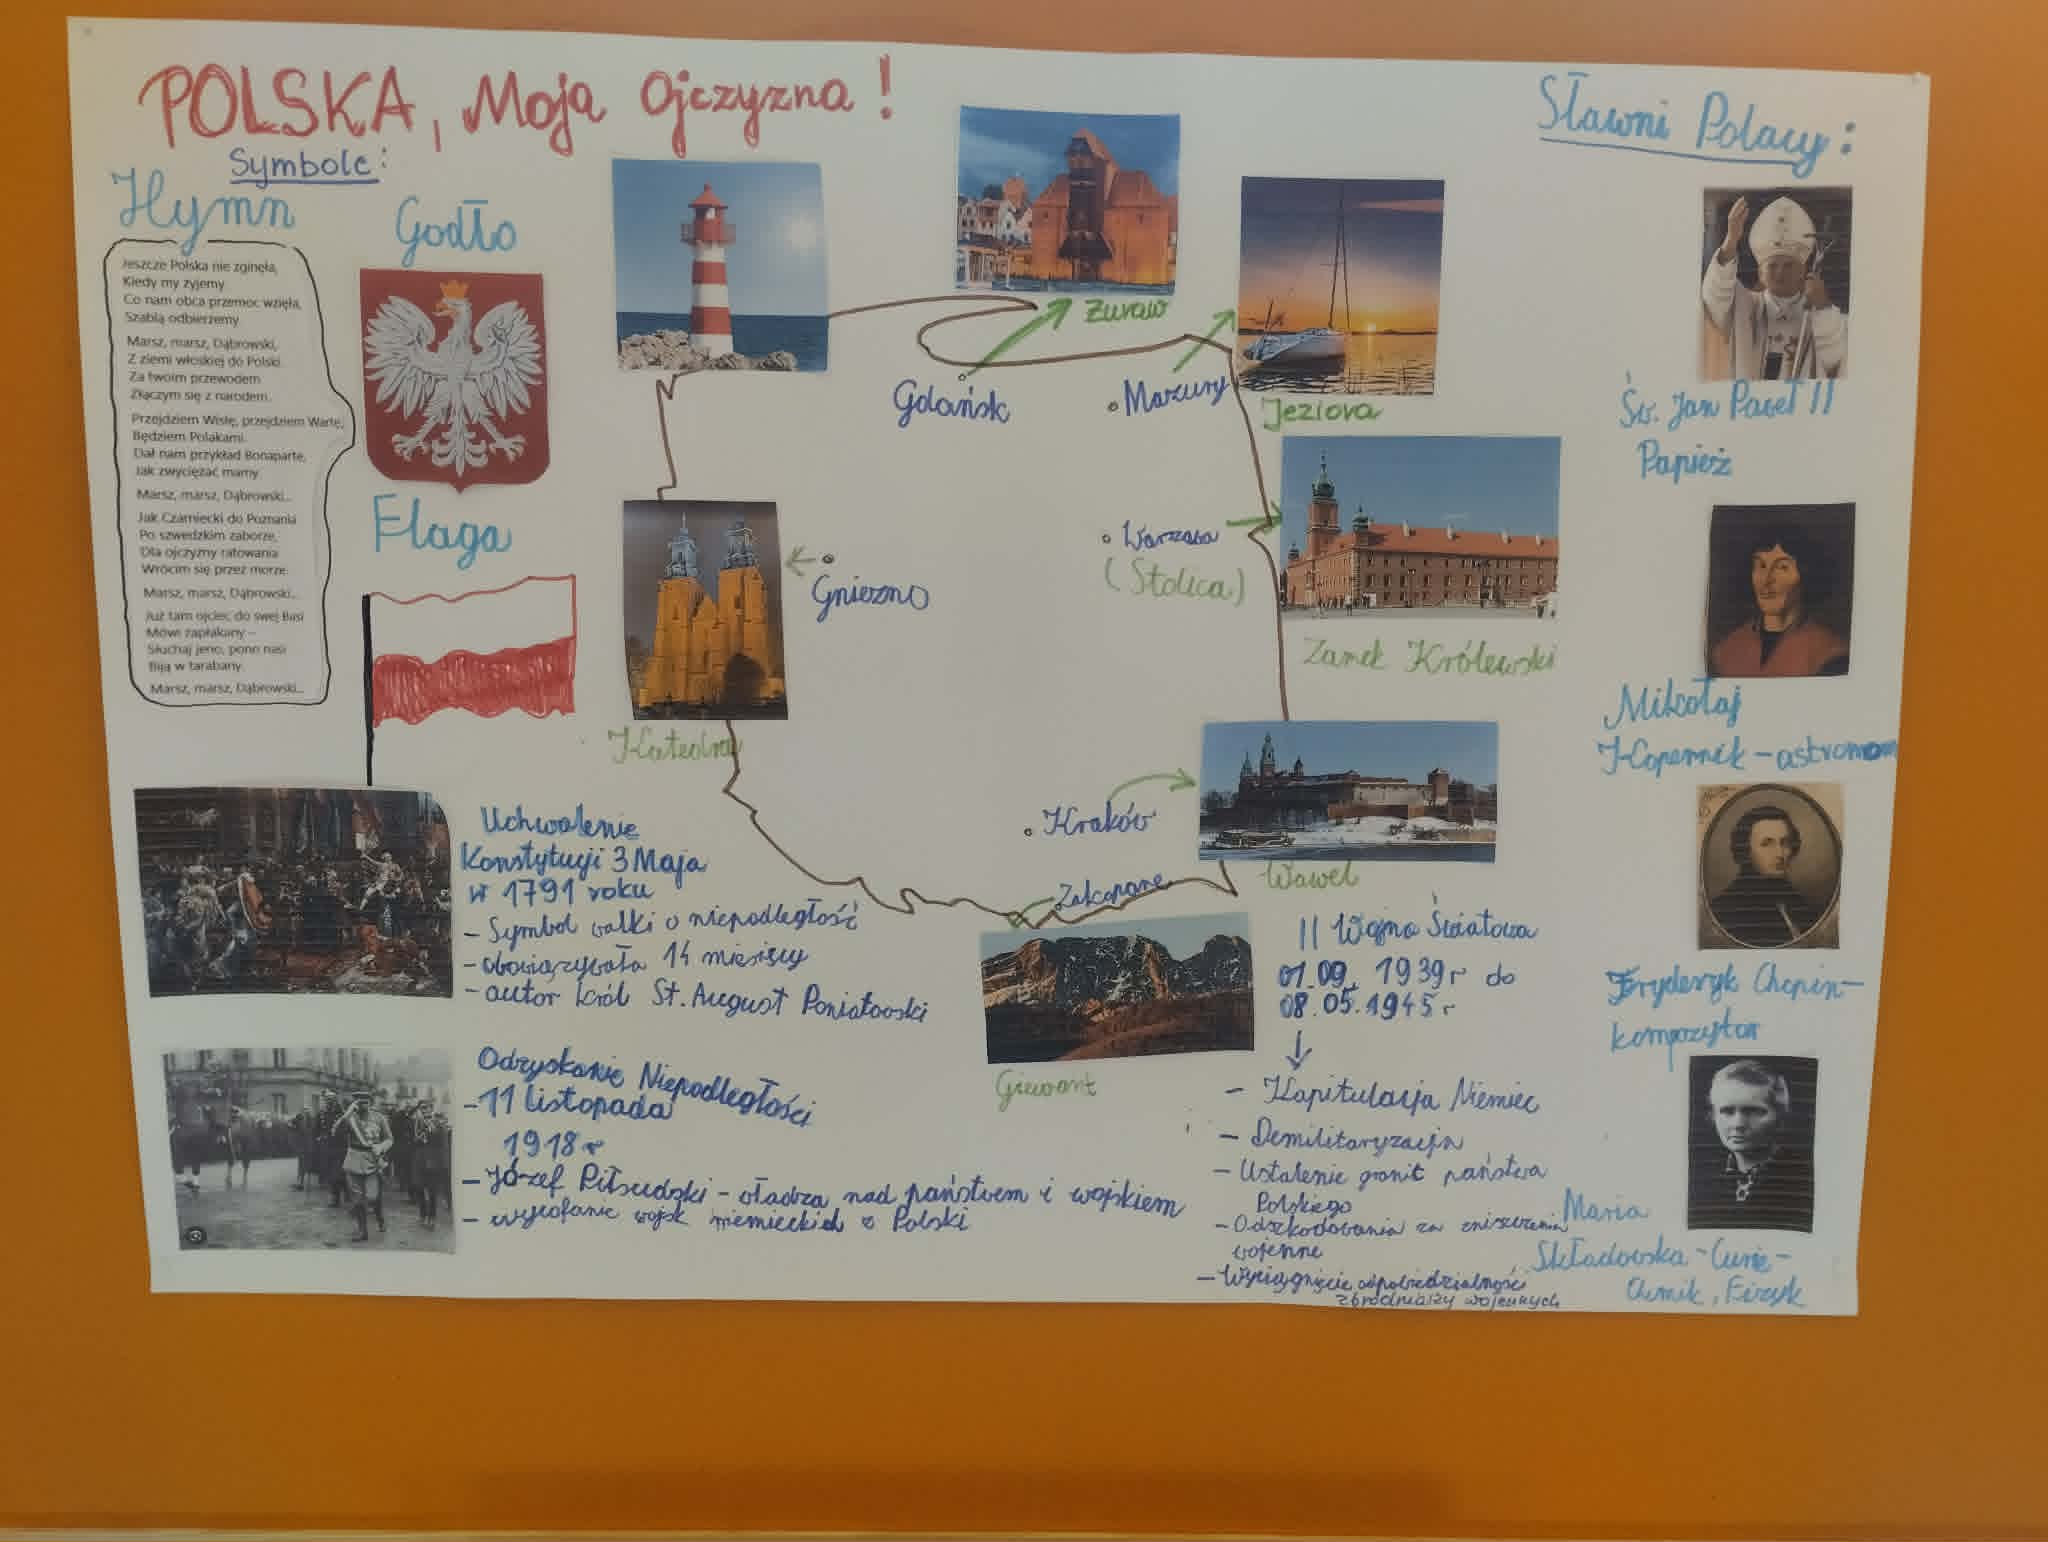 POLSKA, Moja Ojczyzna!
Symbole:
Hymn
Jeszcze Polska nie zginęła,
Kiedy my żyjemy.
Co nam obca przemoc wzięła,
Szablą odbierzemy.
Marsz, marsz, Dąbrowski,
Z ziemi włoskiej do Polski.
Za twoim przewodem
Złączym się z narodem.
Przejdziem Wisłę, przejdziem Wartę,
Będziem Polakami.
Dał nam przykład Bonaparte,
Jak zwyciężać mamy.
Marsz, marsz, Dąbrowski...
Jak Czarniecki do Poznania
Po szwedzkim zaborze,
Dla ojczyzny ratowania
Wrócim się przez morze.
Marsz, marsz, Dąbrowski...
Już tam ojciec do swej Basi
Mówi zapłakany –
Słuchaj jeno, pono nasi
Biją w tarabany.
Marsz, marsz, Dąbrowski...
Godło
Flaga
Uchwalenie
Konstytucji 3 Maja
w 1791 roku
- Symbol walki o niepodległość
- obowiązywała 14 miesięcy
- autor król St. August Poniatowski
Odzyskanie Niepodległości
- 11 listopada
1918 r
- Józef Piłsudski - władza nad państwem i wojskiem
- wycofanie wojsk niemieckich z Polski
Żuraw
Gdańsk
Mazury
Jeziora
Warszawa
(Stolica)
Zamek Królewski
Gniezno
Katedra
Kraków
Wawel
Zakopane
Giewont
II Wojna Światowa
01.09. 1939 r do
08.05.1945 r
- Kapitulacja Niemiec
- Demilitaryzacja
- Ustalenie granic państwa
Polskiego
- Odszkodowania za zniszczenia
wojenne
- Wyciągnięcie odpowiedzialności
zbrodniarzy wojennych
Sławni Polacy:
Św. Jan Paweł II
Papież
Mikołaj
Kopernik - astronom
Fryderyk Chopin-
kompozytor
Maria
Skłodowska-Curie-
Chemik, Fizyk